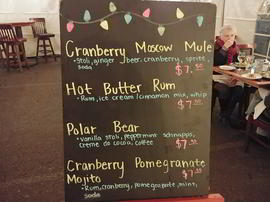 Cranberry Moscow Mule
• Stoli, ginger beer, cranberry, sprite,
soda $7.50
Hot Butter Rum
• Rum, ice cream/cinnamon mix, whip
$7.50
Polar Bear
• Vanilla stoli, peppermint schnapps,
creme do cocoa, coffee $7.50
Cranberry Pomegranate
Mojito $7.50
• Rum, cranberry, pomegranate, mint,
soda